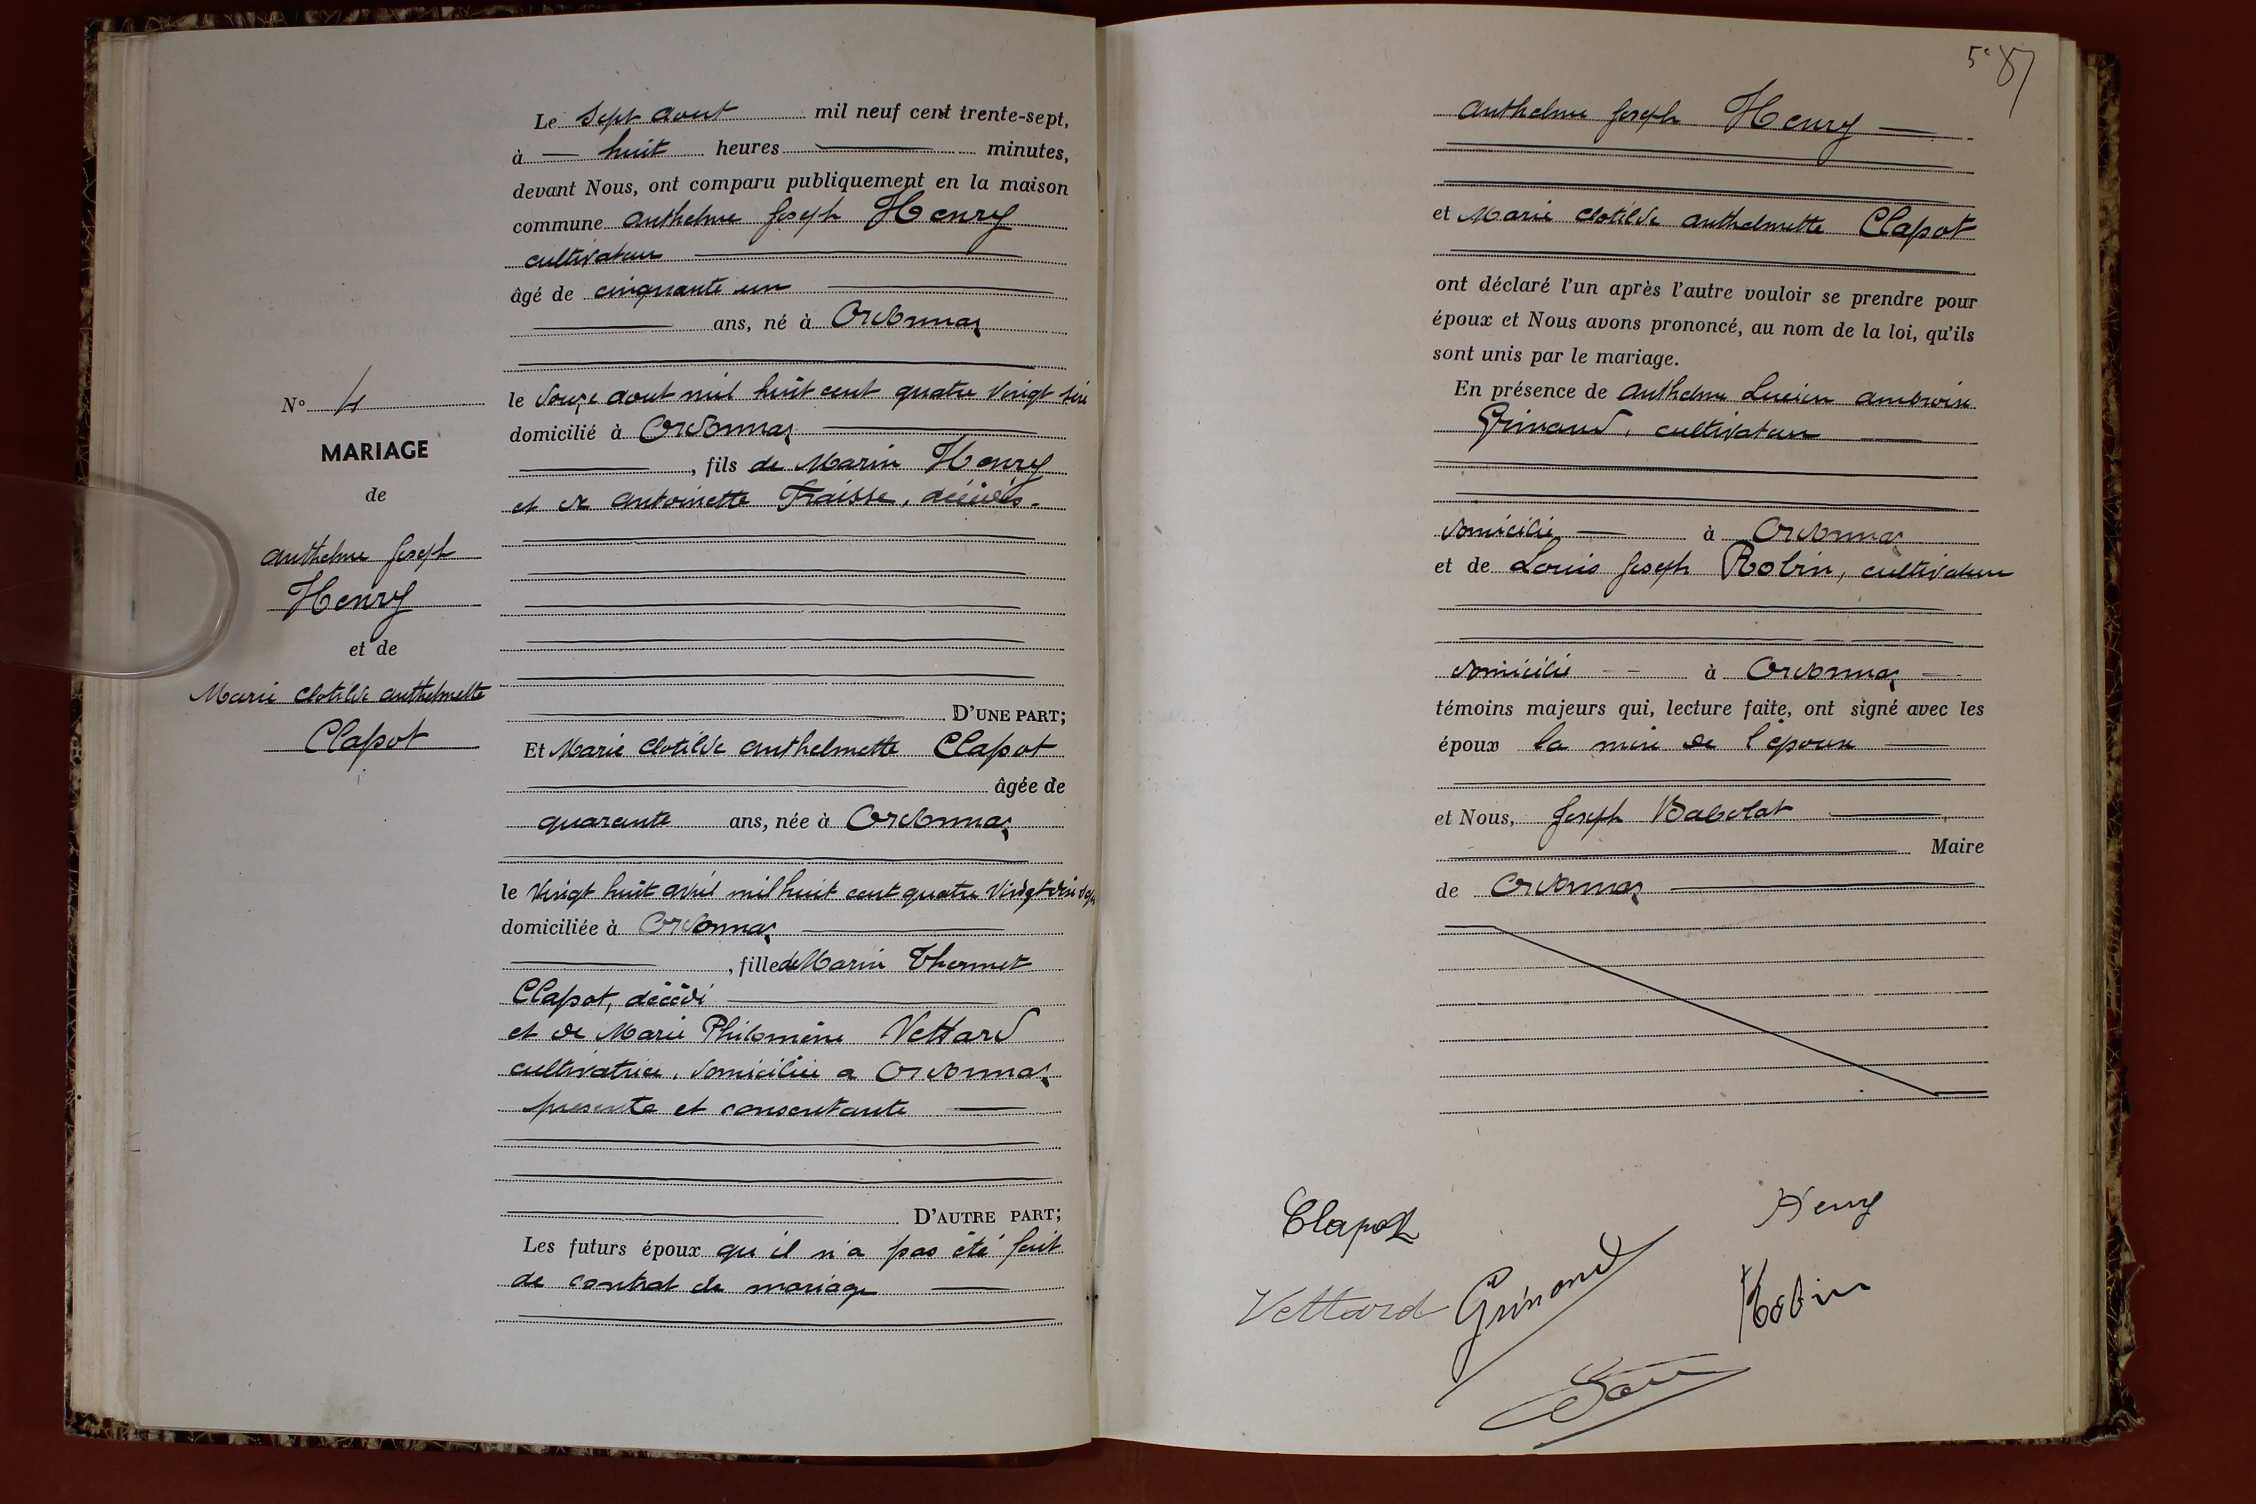 Le sept aout mil neuf cent trente-sept,
à huit heures minutes,
devant Nous, ont comparu publiquement en la maison
commune Anthelme Joseph Henry
cultivateur
âgé de cinquante un
ans, né à Ordonnaz
N° 4
le douze aout mil huit cent quatre vingt six
domicilié à Ordonnaz
MARIAGE
, fils de Marin Henry
de
et de Antoinette Fraisse, décédés.
Anthelme Joseph
Henry
et de
Marie Clotilde Anthelmette
Clapot
D'UNE PART;
Et Marie Clotilde Anthelmette Clapot
âgée de
quarante ans, née à Ordonnaz
le vingt huit avril mil huit cent quatre vingt dix sept
domiciliée à Ordonnaz
, fille de Marin Thermet
Clapot, décédé
et de Marie Philomène Vettard
cultivatrice, domiciliée a Ordonnaz
présente et consentante
D'AUTRE PART;
Les futurs époux qu'il n'a pas été fait
de contrat de mariage
5e
Anthelme Joseph Henry
et Marie Clotilde Anthelmette Clapot
ont déclaré l'un après l'autre vouloir se prendre pour
époux et Nous avons prononcé, au nom de la loi, qu'ils
sont unis par le mariage.
En présence de Anthelme Lucien Ambroise
Grinand, cultivateur
domicilié à Ordonnaz
et de Louis Joseph Robin, cultivateur
domicilié à Ordonnaz
témoins majeurs qui, lecture faite, ont signé avec les
époux la mère de l'épouse
et Nous, Joseph Babolat
Maire
de Ordonnaz
Clapot
Henry
Vettard
Grinand
Robin